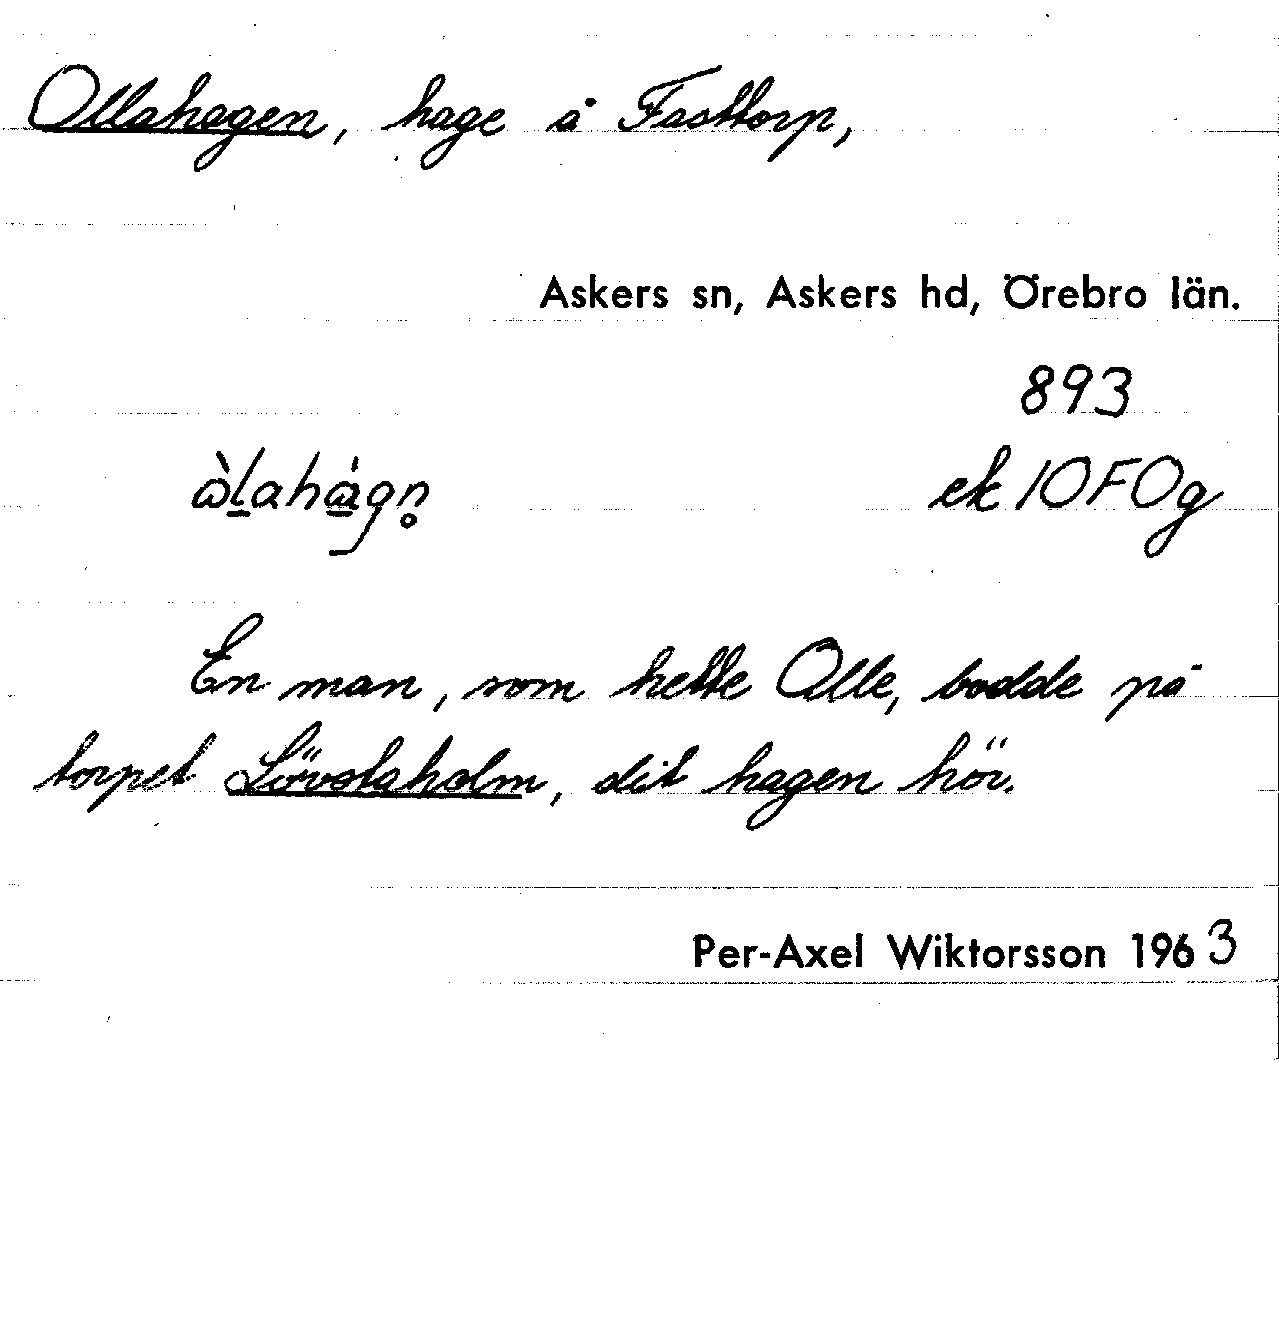 Ollahagen, hage å Fasttorp,
Askers sn, Askers hd, Örebro län.
893
ek 10F0g
En man, som hette Olle, bodde på
torpet Lövstaholm, dit hagen hör.
Per-Axel Wiktorsson 1963